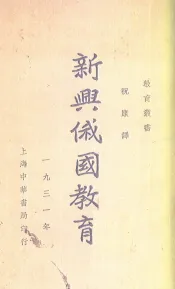 教育叢書
祝康譯
新興俄國教育
一九三一年
上海中華書局印行